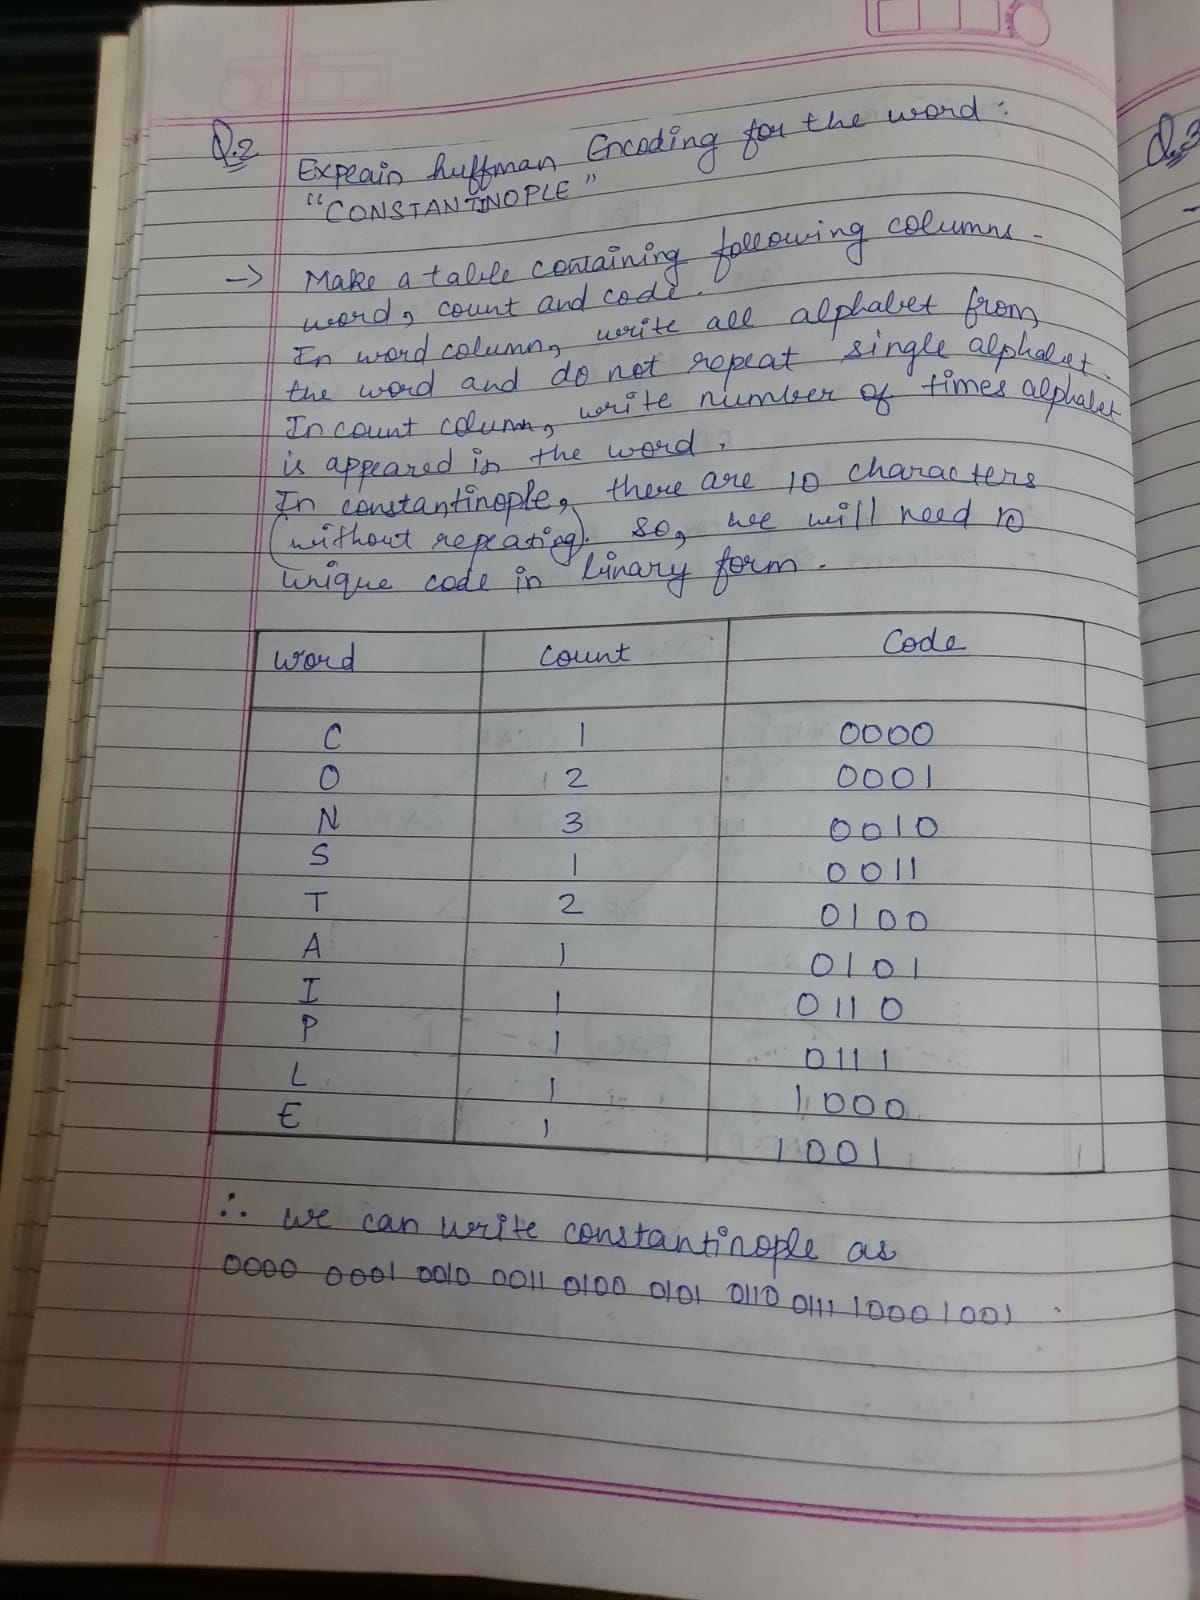 Q.2 Explain huffman Encoding for the word :
"CONSTANTINOPLE"
→ Make a table containing following columns -
word, count and code.
In word column, write all alphabet from
the word and do not repeat single alphabet.
In count column, write number of times alphabet
is appeared in the word.
In constantinople, there are 10 characters
(without repeating). so, we will need 10
unique code in binary form.
word count Code
C 1 0000
O 2 0001
N 3 0010
S 1 0011
T 2 0100
A 1 0101
I 1 0110
P 1 0111
L 1 1000
E 1 1001
∴ we can write constantinople as
0000 0001 0010 0011 0100 0101 0110 0111 1000 1001 .